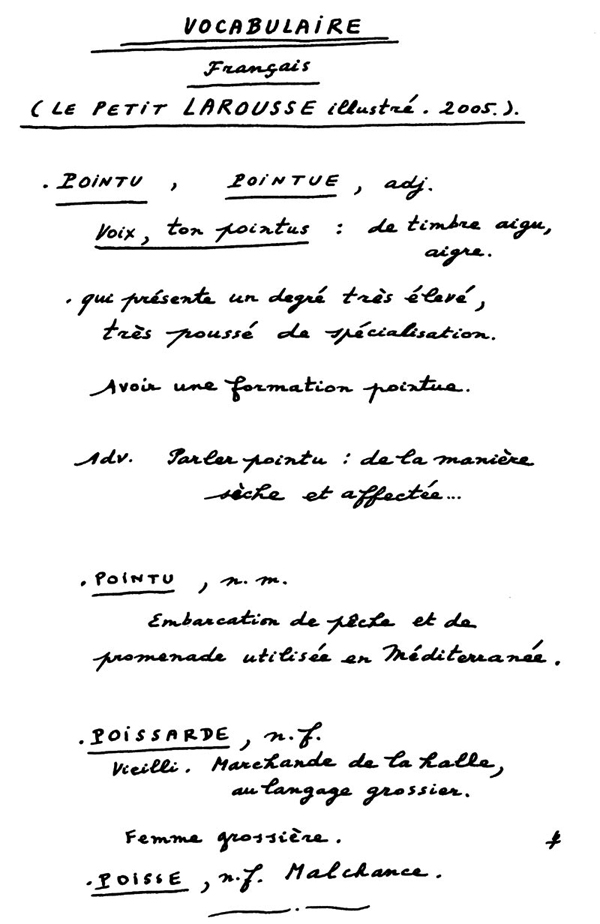 VOCABULAIRE
Français
( LE PETIT LAROUSSE illustré . 2005. ).
. POINTU , POINTUE , adj.
Voix, ton pointus : de timbre aigu,
aigre.
. qui présente un degré très élevé,
très poussé de spécialisation.
Avoir une formation pointue.
Adv. Parler pointu : de la manière
sèche et affectée...
. POINTU , n. m.
Embarcation de pêche et de
promenade utilisée en Méditerranée.
. POISSARDE , n. f.
Vieilli. Marchande de la halle,
au langage grossier.
Femme grossière.
. POISSE , n. f. Malchance.